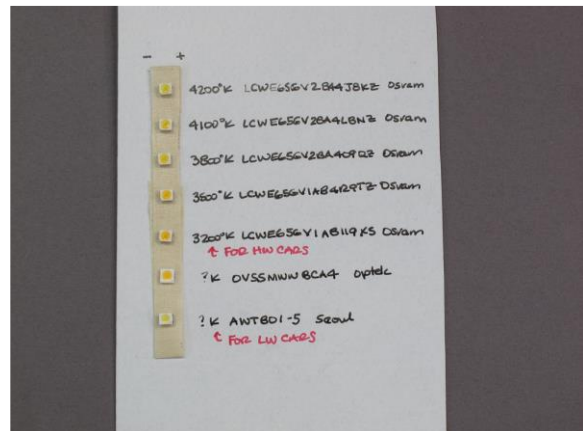 - +
4200°K LCWE6SGV2BA4J8KZ Osram
4100°K LCWE6SGV2BA4L8NZ Osram
3800°K LCWE6SGV2BA4O9QZ Osram
3500°K LCWE6SGV1AB4R9TZ Osram
3200°K LCWE6SGV1AB119K5 Osram
↑ FOR HW CARS
?K OVSSMWWBCA4 Optek
?K AWTBD1-5 Seoul
↑ FOR LW CARS